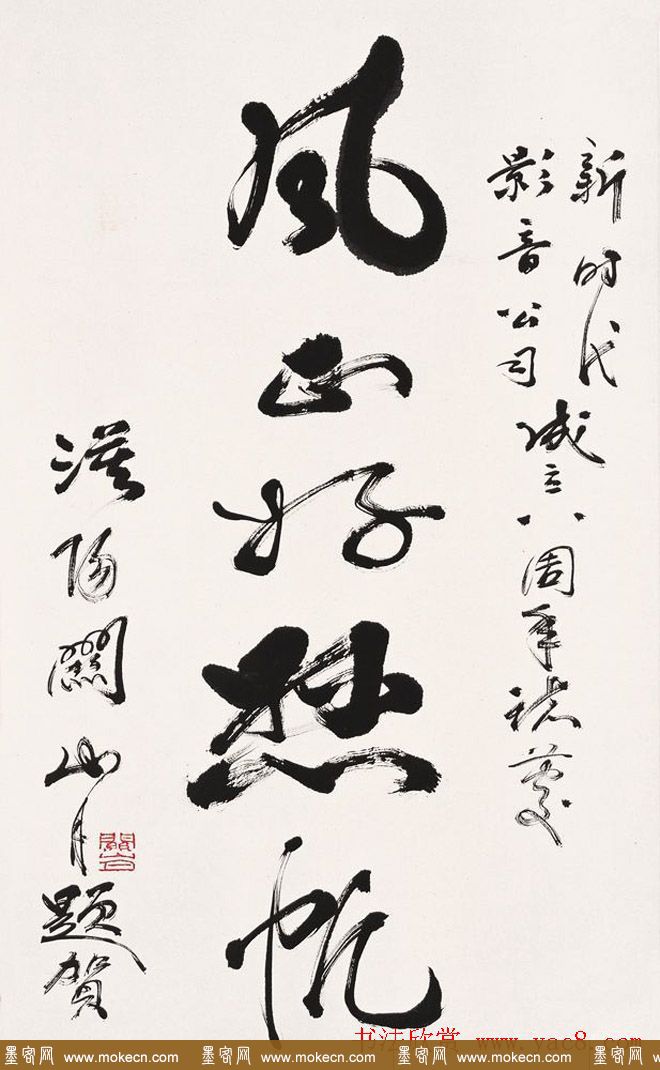 新时代
影音公司成立八周年誌慶
風正好帆
漠陽關山月題賀
书法欣赏 www.yac8.com
墨客网 www.mokecn.com 墨客网 www.mokecn.com 墨客网 www.mokecn.com